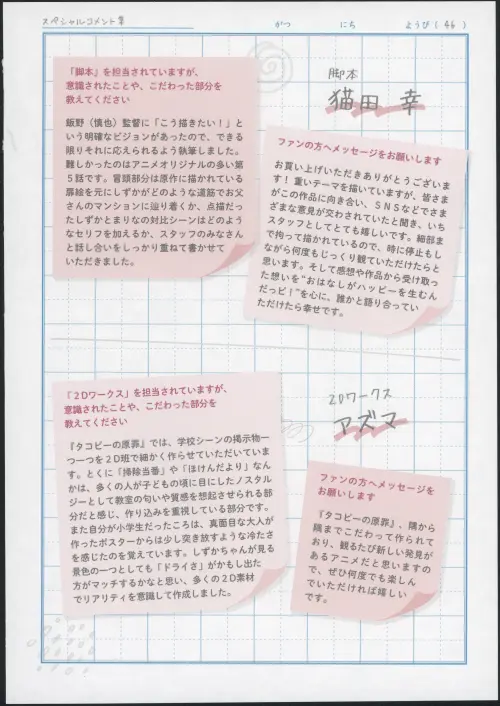 スペシャルコメント集
がつ にち ようび(46)
「脚本」を担当されていますが、
意識されたことや、こだわった部分を
教えてください
飯野(慎也)監督に「こう描きたい!」と
いう明確なビジョンがあったので、できる
限りそれに応えられるよう執筆しました。
難しかったのはアニメオリジナルの多い第
5話です。冒頭部分は原作に描かれている
扉絵を元にしずかがどのような道筋でお父
さんのマンションに辿り着くか、点描だっ
たしずかとまりなの対比シーンはどのよう
なセリフを加えるか、スタッフのみなさん
と話し合いをしっかり重ねて書かせて
いただきました。
脚本
猫田 幸
ファンの方へメッセージをお願いします
お買い上げいただきありがとうございま
す! 重いテーマを描いていますが、皆さま
がこの作品に向き合い、SNSなどでさま
ざまな意見が交わされていたと聞き、いち
スタッフとしてとても嬉しいです。細部ま
で拘って描かれているので、時に停止もし
ながら何度もじっくり観ていただけたらと
思います。そして感想や作品から受け取っ
た想いを“おはなしがハッピーを生むん
だっピ!”を心に、誰かと語り合ってい
ただけたら幸せです。
「2Dワークス」を担当されていますが、
意識されたことや、こだわった部分を
教えてください
『タコピーの原罪』では、学校シーンの掲示物一
つ一つを2D班で細かく作らせていただいていま
す。とくに「掃除当番」や「ほけんだより」なん
かは、多くの人が子どもの頃に目にしたノスタル
ジーとして教室の匂いや質感を想起させられる部
分だと感じ、作り込みを重視している部分です。
また自分が小学生だったころは、真面目な大人が
作ったポスターからは少し突き放すような冷たさ
を感じたのを覚えています。しずかちゃんが見る
景色の一つとしても「ドライさ」がかもし出た
方がマッチするかなと思い、多くの2D素材
でリアリティを意識して作成しました。
2Dワークス
アズマ
ファンの方へメッセージを
お願いします
『タコピーの原罪』、隅から
隅までこだわって作られて
おり、観るたび新しい発見が
あるアニメだと思いますの
で、ぜひ何度でも楽しん
でいただければ嬉しい
です。